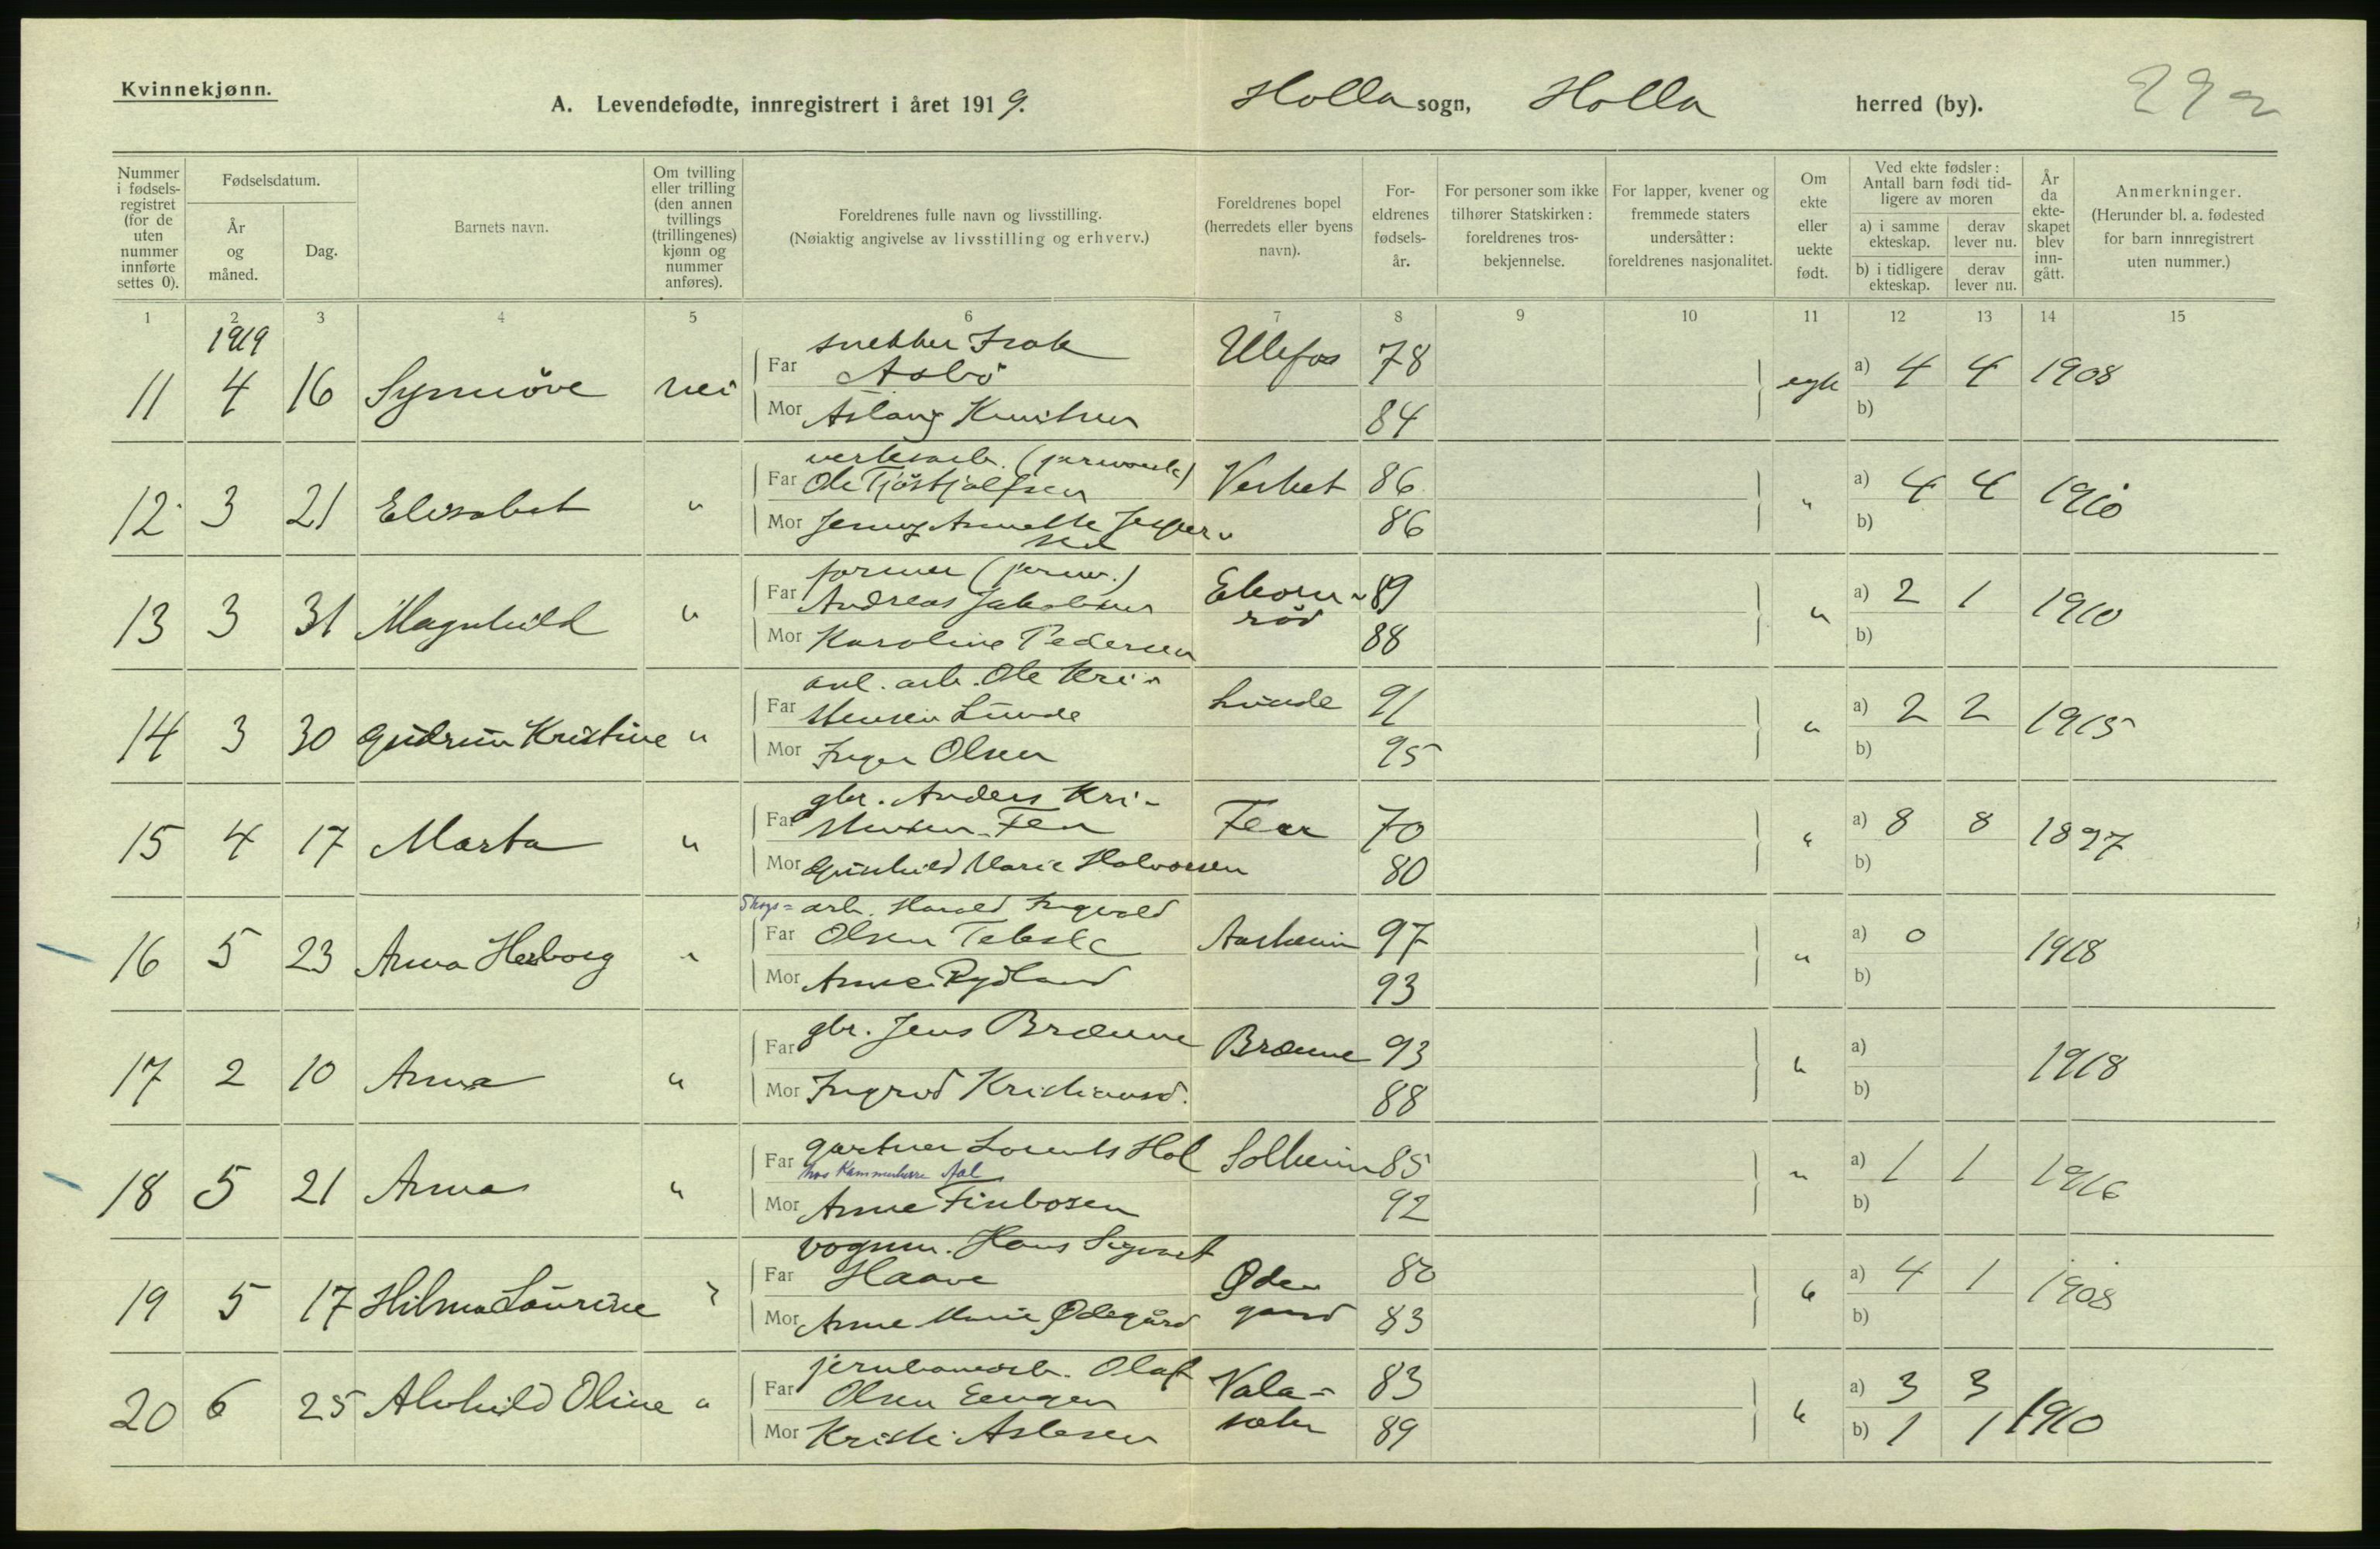 Kvinnekjønn.
A. Levendefødte, innregistrert i året 1919. Holla sogn, Holla herred (by).
Nummer i fødsels-registret (for de uten nummer innførte settes 0).
Fødselsdatum.
År og måned.
Dag.
Barnets navn.
Om tvilling eller trilling (den annen tvillings (trillingenes) kjønn og nummer anføres).
Foreldrenes fulle navn og livsstilling.
(Nøiaktig angivelse av livsstilling og erhverv.)
Foreldrenes bopel (herredets eller byens navn).
For-eldrenes fødsels-år.
For personer som ikke tilhører Statskirken: foreldrenes tros-bekjennelse.
For lapper, kvener og fremmede staters undersåtter: foreldrenes nasjonalitet.
Om ekte eller uekte født.
Ved ekte fødsler: Antall barn født tid-ligere av moren
a) i samme ekteskap. derav lever nu.
b) i tidligere ekteskap. derav lever nu.
År da ekte-skapet blev inn-gått.
Anmerkninger.
(Herunder bl. a. fødested for barn innregistrert uten nummer.)
1 2 3 4 5 6 7 8 9 10 11 12 13 14 15
1919
snekker Isak
11 4 16 Synnöve nei Far Aasbö Ulefos 78 egte a) 4 4 1908
Mor Aslaug Knutsen 84 b)
verksarb. (jernverk)
12 3 21 Elisabet " Far Ole Tjöstjolfsen Verket 86 " a) 4 4 1910
Mor Jenny Annette Jesper- 86 b)
sen
former (jernv.)
13 3 31 Magnhild " Far Andreas Jakobsen Ekorn- 89 " a) 2 1 1910
röd
Mor Karoline Pedersen 88 b)
anl. arb. Ole Kri-
14 3 30 Gudrun Kristine " Far stensen Lunde Lunde 91 " a) 2 2 1915
Mor Inger Olsen 95 b)
gbr. Anders Kri-
15 4 17 Marta " Far stensen Fen Feen 70 " a) 8 8 1897
Mor Gunhild Marie Halvorsen 80 b)
Skogs= arb. Harald Ingvald
16 5 23 Anna Herborg " Far Olsen Teksle Aasheim 97 " a) 0 1918
Mor Anne Rydland 93 b)
gbr. Jens Brænne
17 2 10 Anna " Far Brænne 93 " a) 1918
Mor Ingrid Kristiansd. 88 b)
18 5 21 Anna " Far gartner Lorents Hol Solheim 85 " a) 1 1 1916
hos Kammerherre Aal
Mor Anne Finbosen 92 b)
vognm. Hans Sigurd
19 5 17 Hilma Laurine " Far Haave Øde- 80 " a) 4 1 1908
Mor Anne Marie Ødegård gaard 83 b)
jernbanearb. Olaf
20 6 25 Alvhild Oline " Far Olsen Eeugen Vala= 83 " a) 3 3 1910
Mor Kristi Aslesen sæter 89 b) 1 1